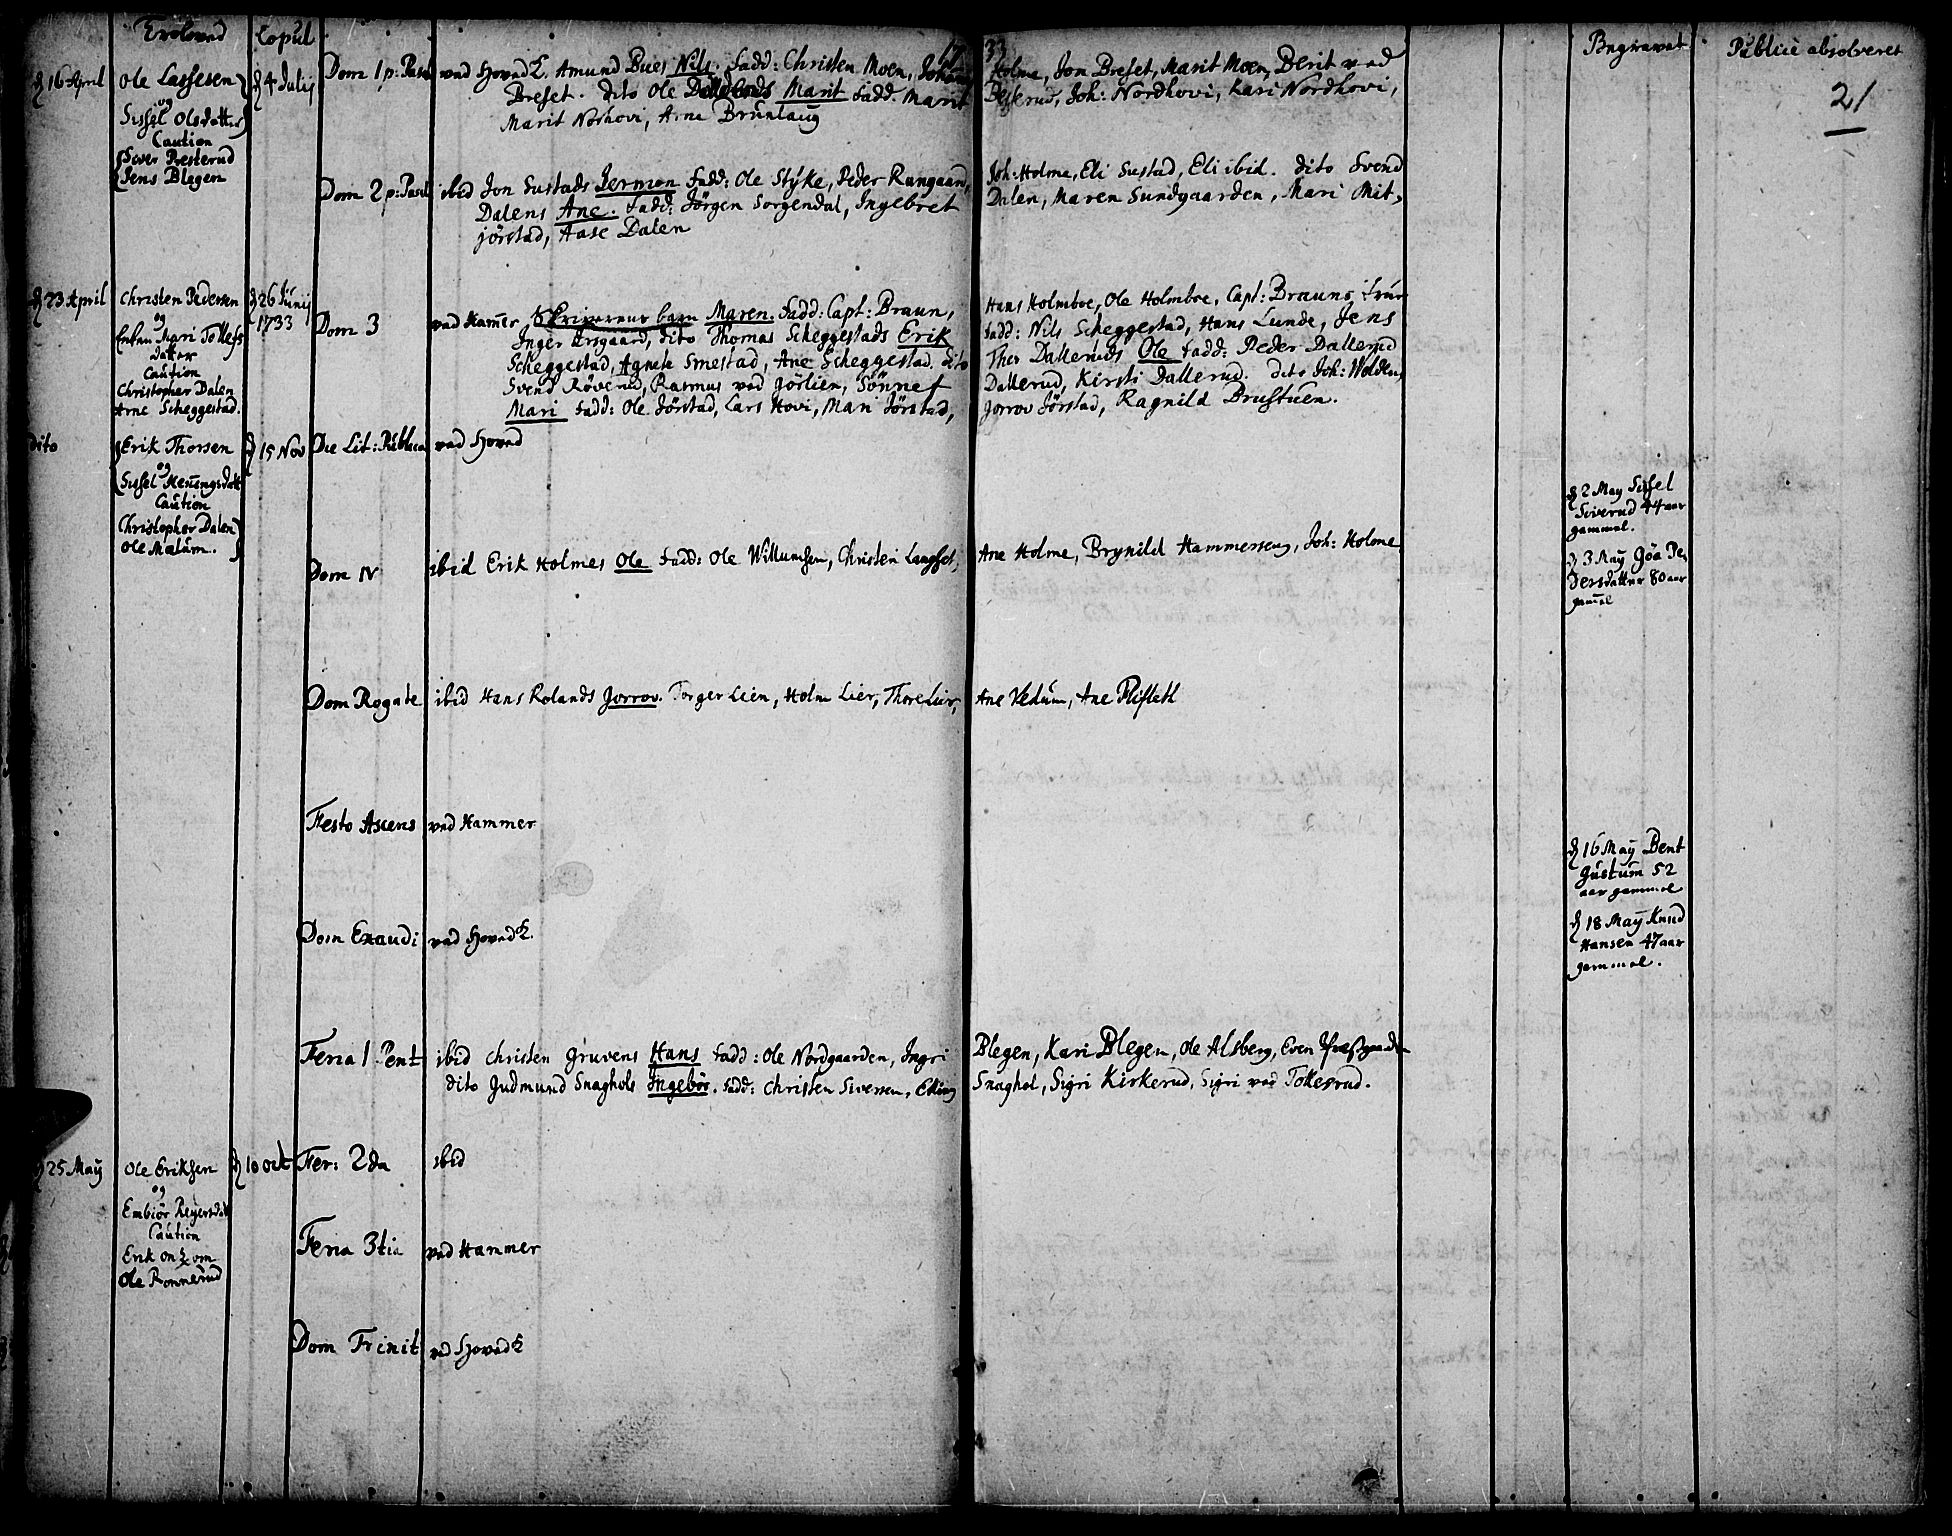 Troloved Copul 17 33 Begravet Publice absolveret
21
16 April Ole Lassesen 4 Julij Dom 1 p: Pasch ved Hoved K. Amund Bues Nils. Fadd: Christen Moen, Johannes Holme, Jon Breset, Marit Moen, Berit ved
og Breset. dito Ole Marit Fadd. Marit Joh: Nordhovi, Kari Nordhovi,
Sissel Olsdatter Marit Norhovi, Arne Brunlaug
Caution
Siver Presterud
Jens Blegen
Dom 2 p: Pasch ibid Jon Sustads Jermon Fadd: Ole Styke, Peder Rungaard, Joh: Holme, Eli Sustad, Eli ibid. dito Svend
Dalens Ane. Fadd: Jörgen Sorgendal, Ingebret Dalen, Maren Sundgaarden, Mari Mit-
jörstad, Aase Dalen
23 April Christen Pedersen 26 Junij 1733 Dom 3 ved Hamer Skriverens barn Maren. Fadd: Capt: Braun, Hans Holmboe, Ole Holmboe, Capt: Brauns Frue
og Inger dito Thomas Scheggestads Erik Fadd: Nils Scheggestad, Hans Lunde, Jens
Enken Mari Tollefs Scheggestad, Agnete Smestad, Ane Scheggestad. dito Thor Dalleruds Ole Fadd: Peder Dallerud
datter Svend Röverud, Rasmus ved Görlien, Sönnet Dallerud, Kirsti Dallerud. dito Joh: Woldens
Caution Mari Fadd: Ole Jörstad, Lars Hovi, Mari Jörstad, Jorrov Jörstad, Ragnild Brustuen.
Christopher Dalen
Arne Scheggestad.
dito Erik Thorsen 15 Nov Die Lit: Publica ved Hoved
og
Sissel Henningsdatt
Caution
Christopher Dalen
Ole Malum.
2 May Sissel
Siverud 44 aar
gammel.
Dom IV ibid Erik Holmes Ole Fadd: Ole Willumsen, Christen Langset, Ane Holme, Brynild Hammerseng, Joh: Holme
3 May Göa Pe
dersdatter 80 aar
gamel
Dom Rogate ibid Hans Rolands Jorrov. Torger Lien, Holm Lier, Thore Lier, Ane Vedum, Ane Flifleth
Festo Ascens ved Hammer
16 May Bent
Gustum 52
aar gammel
18 May Knud
Hansen 47 aar
gammel.
Dom Exaudi ved Hoved K.
Feria 1 Pent ibid Christen Gruvens Hans Fadd: Ole Nordgaarden, Ingri Blegen, Kari Blegen, Ole Alsberg, Even
dito Judmund Snaghols Ingebör. Fadd: Christen Siversen, Elling Snaghol, Sigri Kirkerud, Sigri ved Tollesrud.
25 May Ole Eriksen 10 Oct Fer: 2da ibid
og
Embiör Reyersdatt
Caution
Erik
Ole Ronnerud
Feria 3tia ved Hammer
Dom Trinit ved Hoved K